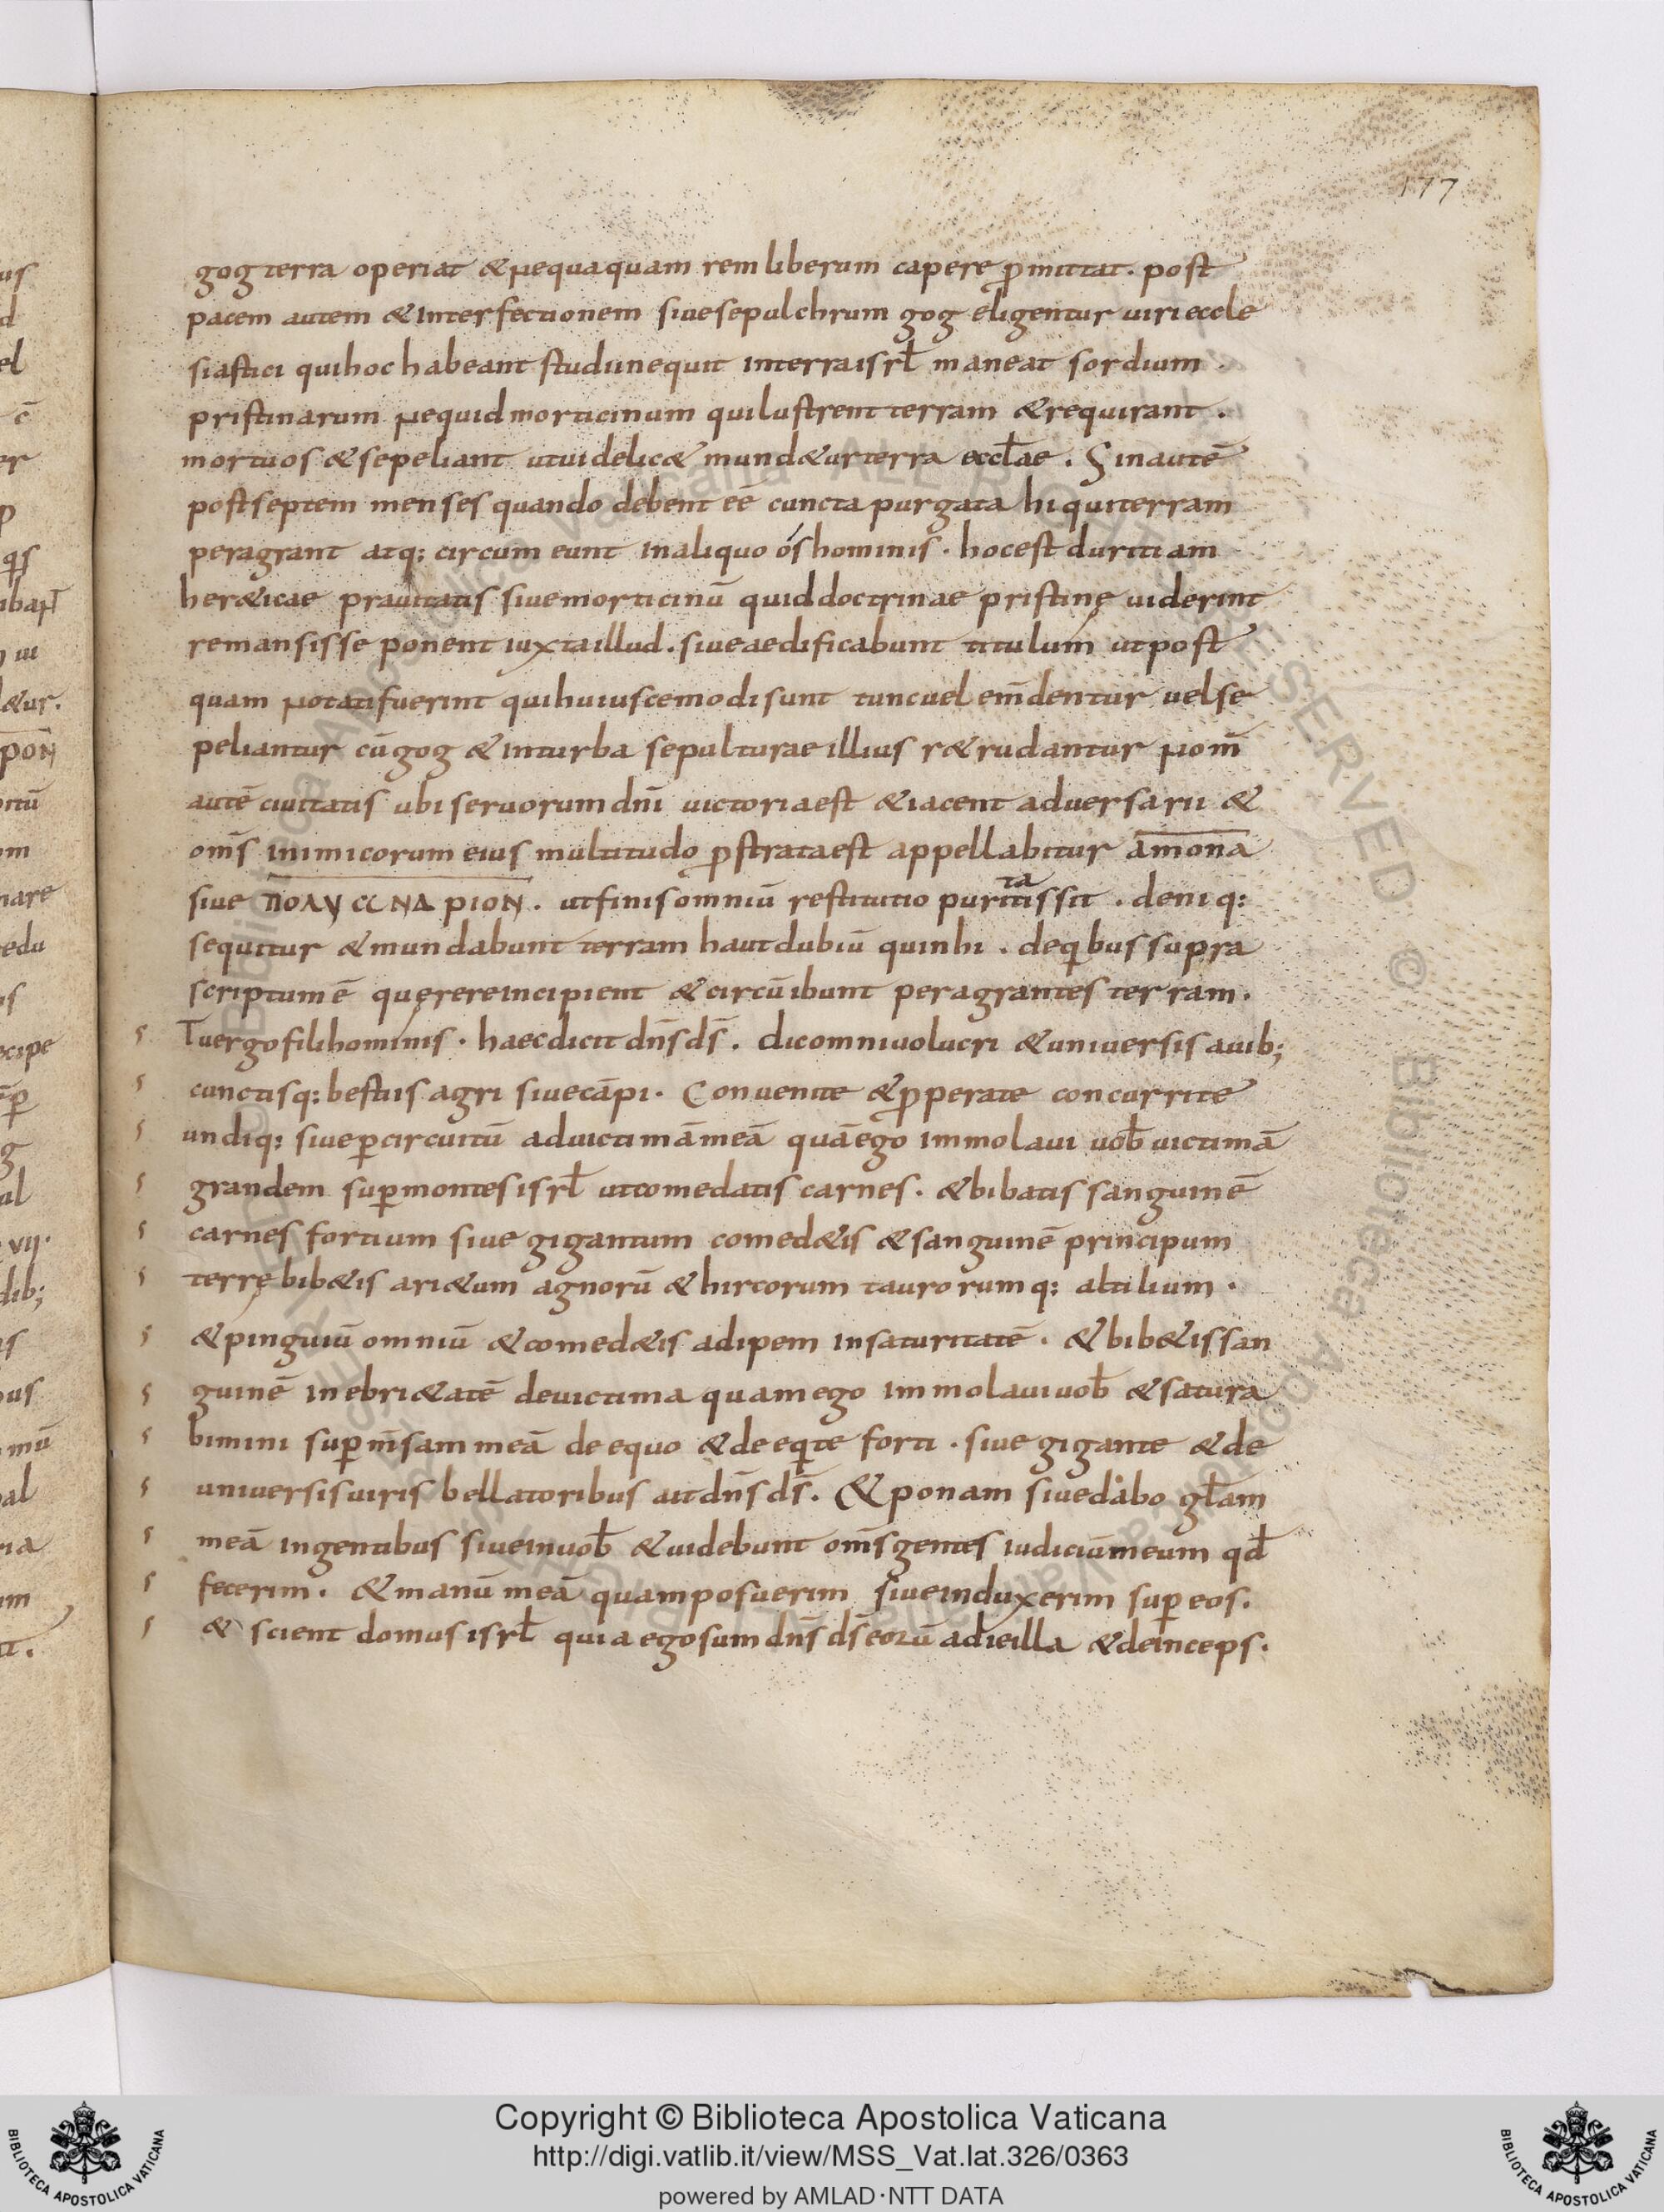 177
gog terra operiat & nequaquam rem liberum capere ꝓmittat. post
pacem autem & interfectionem siue sepulchrum gog eligentur uiri eccle
siastici qui hoc habeant studii nequit in terra isrl̄ maneat sordium
pristinarum nequid morticinum qui lustrent terram & requirant.
mortuos & sepeliant ut uidelic& mund&ur terra eccl̄ae. Sin autē
post septem menses quando debent eē cuncta purgata hi qui terram
peragrant atq: circumeunt in aliquo ós hominis. hoc est duritiam
her&icae prauitatis siue morticinū quid doctrinae pristinę uiderint
remansisse ponent iuxta illud. siue aedificabunt titulum ut post
quam notati fuerint qui huiuscemodi sunt tunc uel em̄dentur uel se
peliantur cū gog & in turba sepulturae illius r&rudantur nom̄
autē ciuitatis ubi seruorum dn̄i uictoria est & iacent aduersarii &
om̄s inimicorum eius multitudo ꝓstrata est appellabitur amona
siue ΠΟΛΥ CCNΔ PION. ut finis omniū restitutio puritatis sit. deniq:
sequitur & mundabunt terram haut dubiū quin hi. de qibus supra
scriptum ē quęrere incipient & circūibunt peragrantes terram.
Tu ergo fili hominis. haec dicit dn̄s ds̄. dic omni uolucri & uniuersis auib;
cunctisq: bestiis agri siue cāpi. Conuenite & ꝓperate concurrite
undiq: siue ꝑ circuitū ad uictimā meā quā ego immolaui uob̄ uictimā
grandem suꝑ montes isrl̄ ut comedatis carnes. & bibatis sanguinē
carnes fortium siue gigantum comed&is & sanguinē principum
terrę bib&is ari&um agnorū & hircorum taurorumq: altilium.
& pinguiū omniū & comed&is adipem in saturitatē. & bib&is san
guinē in ebri&atē de uictima quam ego immolaui uob̄ & satura
bimini suꝑ m̄sam meā de equo & de eqite forti. siue gigante & de
uniuersis uiris bellatoribus ait dn̄s ds̄. & ponam siue dabo gl̄am
meā in gentibus siue in uob̄ & uidebunt om̄s gentes iudiciū meum qd̄
fecerim. & manū meā quam posuerim siue induxerim suꝑ eos.
& scient domus isrl̄ quia ego sum dn̄s ds̄ eorū a die illa & deinceps.
Copyright © Biblioteca Apostolica Vaticana
http://digi.vatlib.it/view/MSS_Vat.lat.326/0363
powered by AMLAD·NTT DATA
BIBLIOTECA APOSTOLICA VATICANA
BIBLIOTECA APOSTOLICA VATICANA